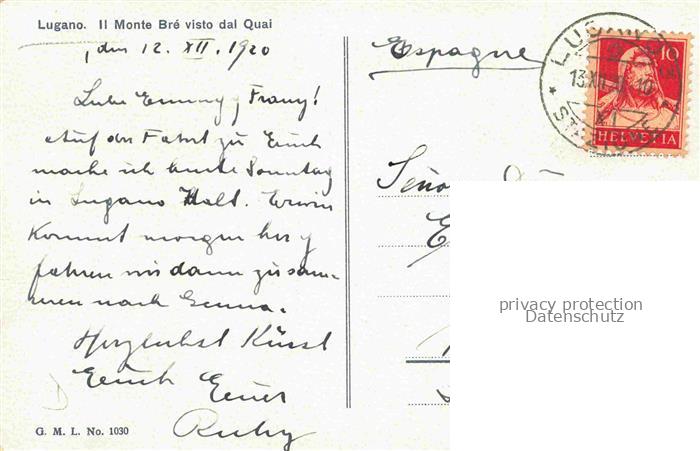 Lugano. Il Monte Bré visto dal Quai
, den 12. XII. 1920
Liebe Emmy y Franz!
Auf der Fahrt zu Euch
mache ich heute Sonntag
in Lugano Halt. Erwin
kommt morgen her y
fahren wir dann zusam-
men nach Genua.
Herzlichst Küsst
Euch Euer
Ruby
G. M. L. No. 1030
Espagne
10
HELVETIA
LUGANO
13.XII.
Señor
privacy protection
Datenschutz